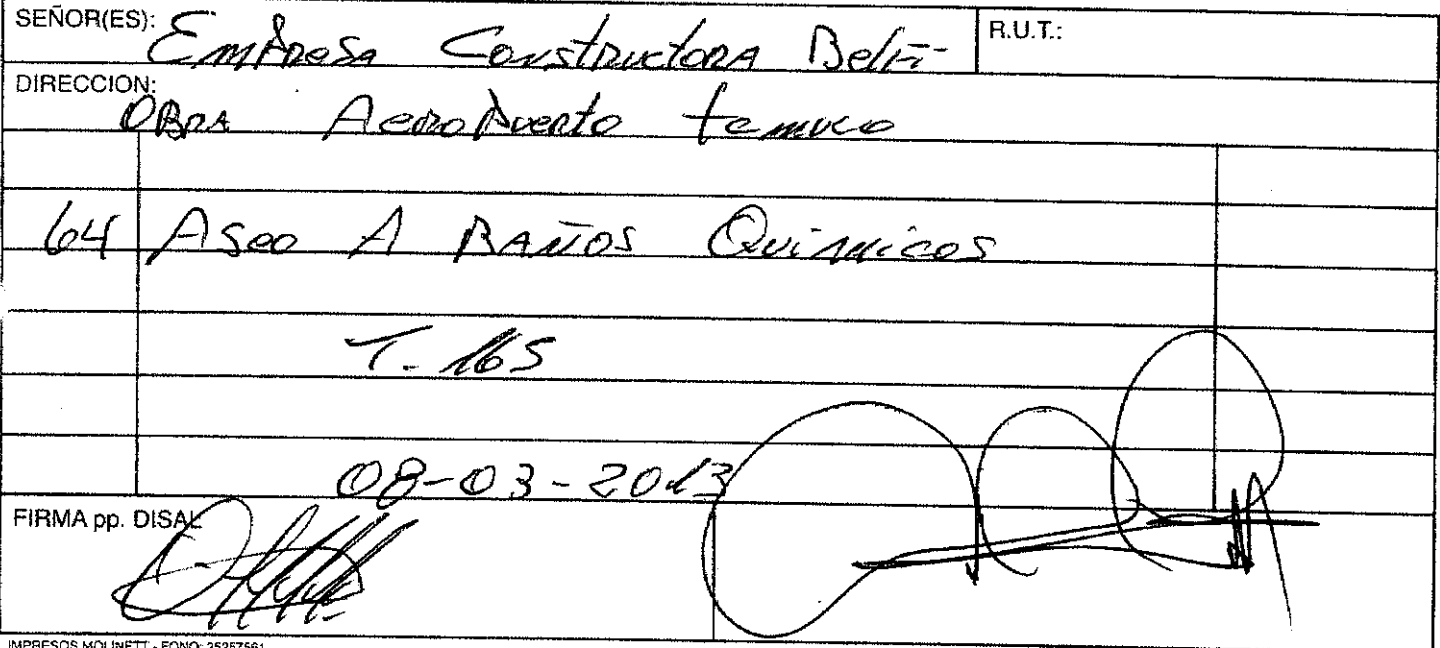 SEÑOR(ES): Empresa Constructora R.U.T.:
DIRECCION:
OBRA AeroPuerto temuco
64 Aseo A BAÑOS Quimicos
T. 165
08-03-2013
FIRMA pp. DISAL
IMPRESOS MOLINETT - FONO: 25257561